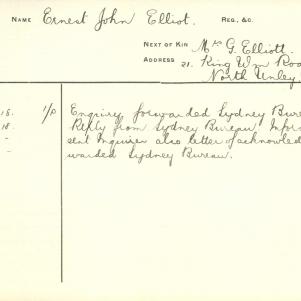 NAME Ernest John Elliot. REG. &C.
NEXT OF KIN Mrs G. Elliott.
ADDRESS 21. King Wm Roa
North Unley
18. 1/P Enquiry forwarded Sydney Bure
18. Reply from Sydney Bureau. Infor
- sent Inquirer also letter of acknowled
- warded Sydney Bureau.